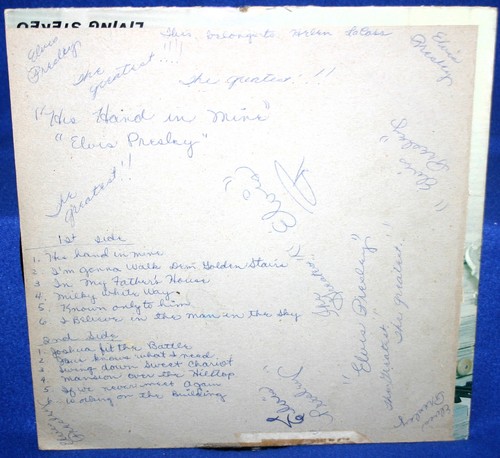 LIVING STEREO
This belongs to Helen
Elvis Presley
The Greatest!!!
Elvis Presley
The Greatest!!!
"His Hand in Mine"
"Elvis Presley"
"Elvis Presley"
The Greatest!!
Elvis
1st Side
1. His hand in mine
2 I'm gonna Walk Dem Golden Stairs
3 In My Father's House
4. Milky White Way
5. Known only to him
6 I Believe in the man in the sky
2nd Side
1. Joshua fit the Battle
2 Jesus knows what I need
3 Swing down Sweet Chariot
4 Mansion over the Hilltop
5 If we never meet Again
6 Working on the Building
"Elvis Presley"
The Greatest!!
The Greatest!!
"Elvis Presley"
Elvis Presley
Elvis Presley